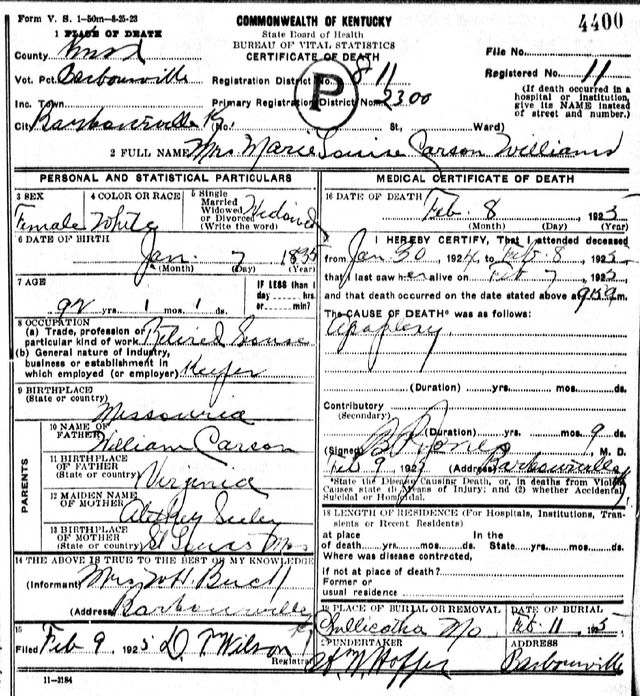 Form V. S. 1-50m-8-25-23
COMMONWEALTH OF KENTUCKY
4400
1 PLACE OF DEATH
State Board of Health
BUREAU OF VITAL STATISTICS
CERTIFICATE OF DEATH
County Knox
File No.
Vot. Pct. Barbourville
Registration District No. 811
Registered No. 11
P
Inc. Town
Primary Registration District No. 2300
(If death occurred in a hospital or institution, give its NAME instead of street and number.)
City Barbourville Ky. (No. St., Ward)
2 FULL NAME Mrs Marie Louise Carson Williams
PERSONAL AND STATISTICAL PARTICULARS
3 SEX
Female
4 COLOR OR RACE
White
5 Single
Married
Widowed
or Divorced
(Write the word)
Widowed
6 DATE OF BIRTH
Jan. 7
(Month) (Day) (Year)
7 AGE
yrs. 1 mos. 1 ds.
IF LESS than 1
day hrs.
or min?
8 OCCUPATION
(a) Trade, profession or
particular kind of work Retired House
(b) General nature of Industry,
business or establishment in
which employed (or employer) Keeper
9 BIRTHPLACE
(State or country)
Missouri
PARENTS
10 NAME OF
FATHER William Carson
11 BIRTHPLACE
OF FATHER
(State or country) Virginia
12 MAIDEN NAME
OF MOTHER
Seeley
13 BIRTHPLACE
OF MOTHER
(State or country) St Louis Mo
14 THE ABOVE IS TRUE TO THE BEST OF MY KNOWLEDGE
(Informant) Mrs
(Address) Barbourville
15
Filed Feb 9 1925 D. T. Wilson
Registrar
11-3184
MEDICAL CERTIFICATE OF DEATH
16 DATE OF DEATH Feb. 8 1925
(Month) (Day) (Year)
I HEREBY CERTIFY, That I attended deceased
from Jan 30, 1924, to Feb. 8 1925
that I last saw her alive on Feb 7 192
and that death occurred on the date stated above at m.
The CAUSE OF DEATH* was as follows:
Apoplexy
(Duration) yrs. mos. ds.
Contributory
(Secondary)
(Duration) yrs. mos. 9 ds.
(Signed) Jones M. D.
Feb 9 192 (Address) Barbourville
*State the Disease Causing Death, or, in deaths from Violent
Causes state (1) Means of Injury; and (2) whether Accidental,
Suicidal or Homicidal.
18 LENGTH OF RESIDENCE (For Hospitals, Institutions, Tran-
sients or Recent Residents)
at place
of death yrs. mos. ds.
In the
State yrs. mos. ds.
Where was disease contracted,
if not at place of death?
Former or
usual residence
19 PLACE OF BURIAL OR REMOVAL
Mo
DATE OF BURIAL
Feb. 11 1925
UNDERTAKER
ADDRESS
Barbourville